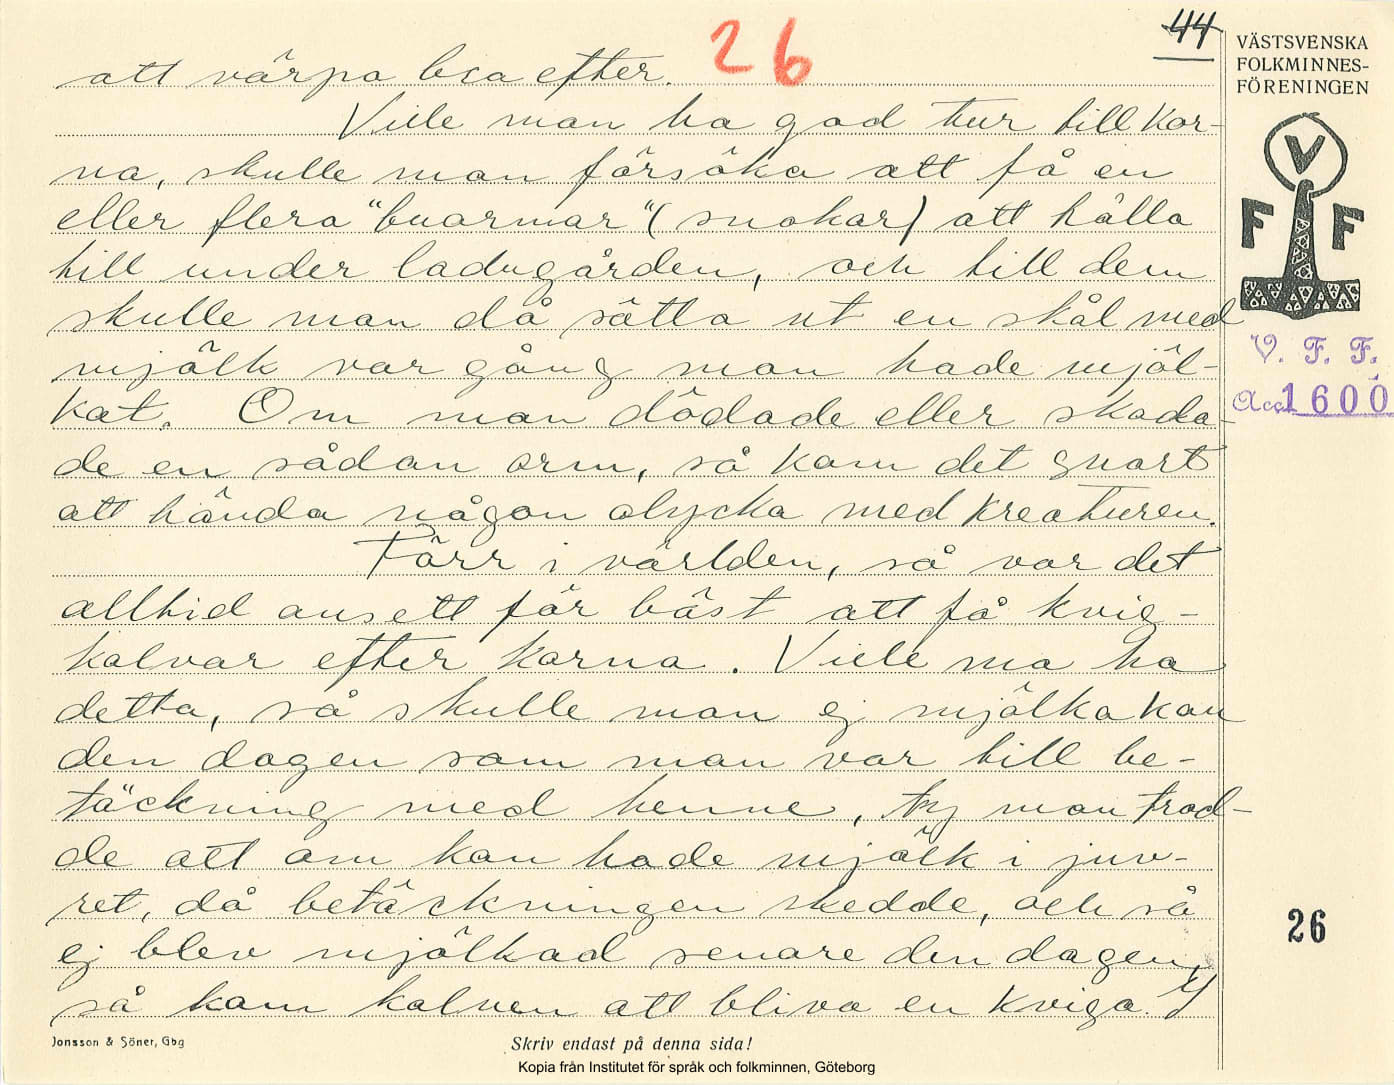 44
26
VÄSTSVENSKA
FOLKMINNES-
FÖRENINGEN
V
F F
V. F. F.
Acc. 1600
att värpa bra efter.
Ville man ha god tur till kor-
na, skulle man försöka att få en
eller flera "buarmar" (snokar) att hålla
till under ladugården, och till dem
skulle man då sätta ut en skål med
mjölk var gång man hade mjöl-
kat. Om man dödade eller skada-
de en sådan orm, så kom det snart
att hända någon olycka med kreaturen.
Förr i världen, så var det
alltid ansett för bäst att få kvig-
kalvar efter korna. Ville ma ha
detta, så skulle man ej mjölka kon
den dagen som man var till be-
täckning med henne, ty man trod-
de att om kon hade mjölk i juv-
ret, då betäckningen skedde, och så
ej blev mjölkad senare den dagen,
så kom kalven att bliva en kviga.
26
Jonsson & Söner, Gbg
Skriv endast på denna sida!
Kopia från Institutet för språk och folkminnen, Göteborg